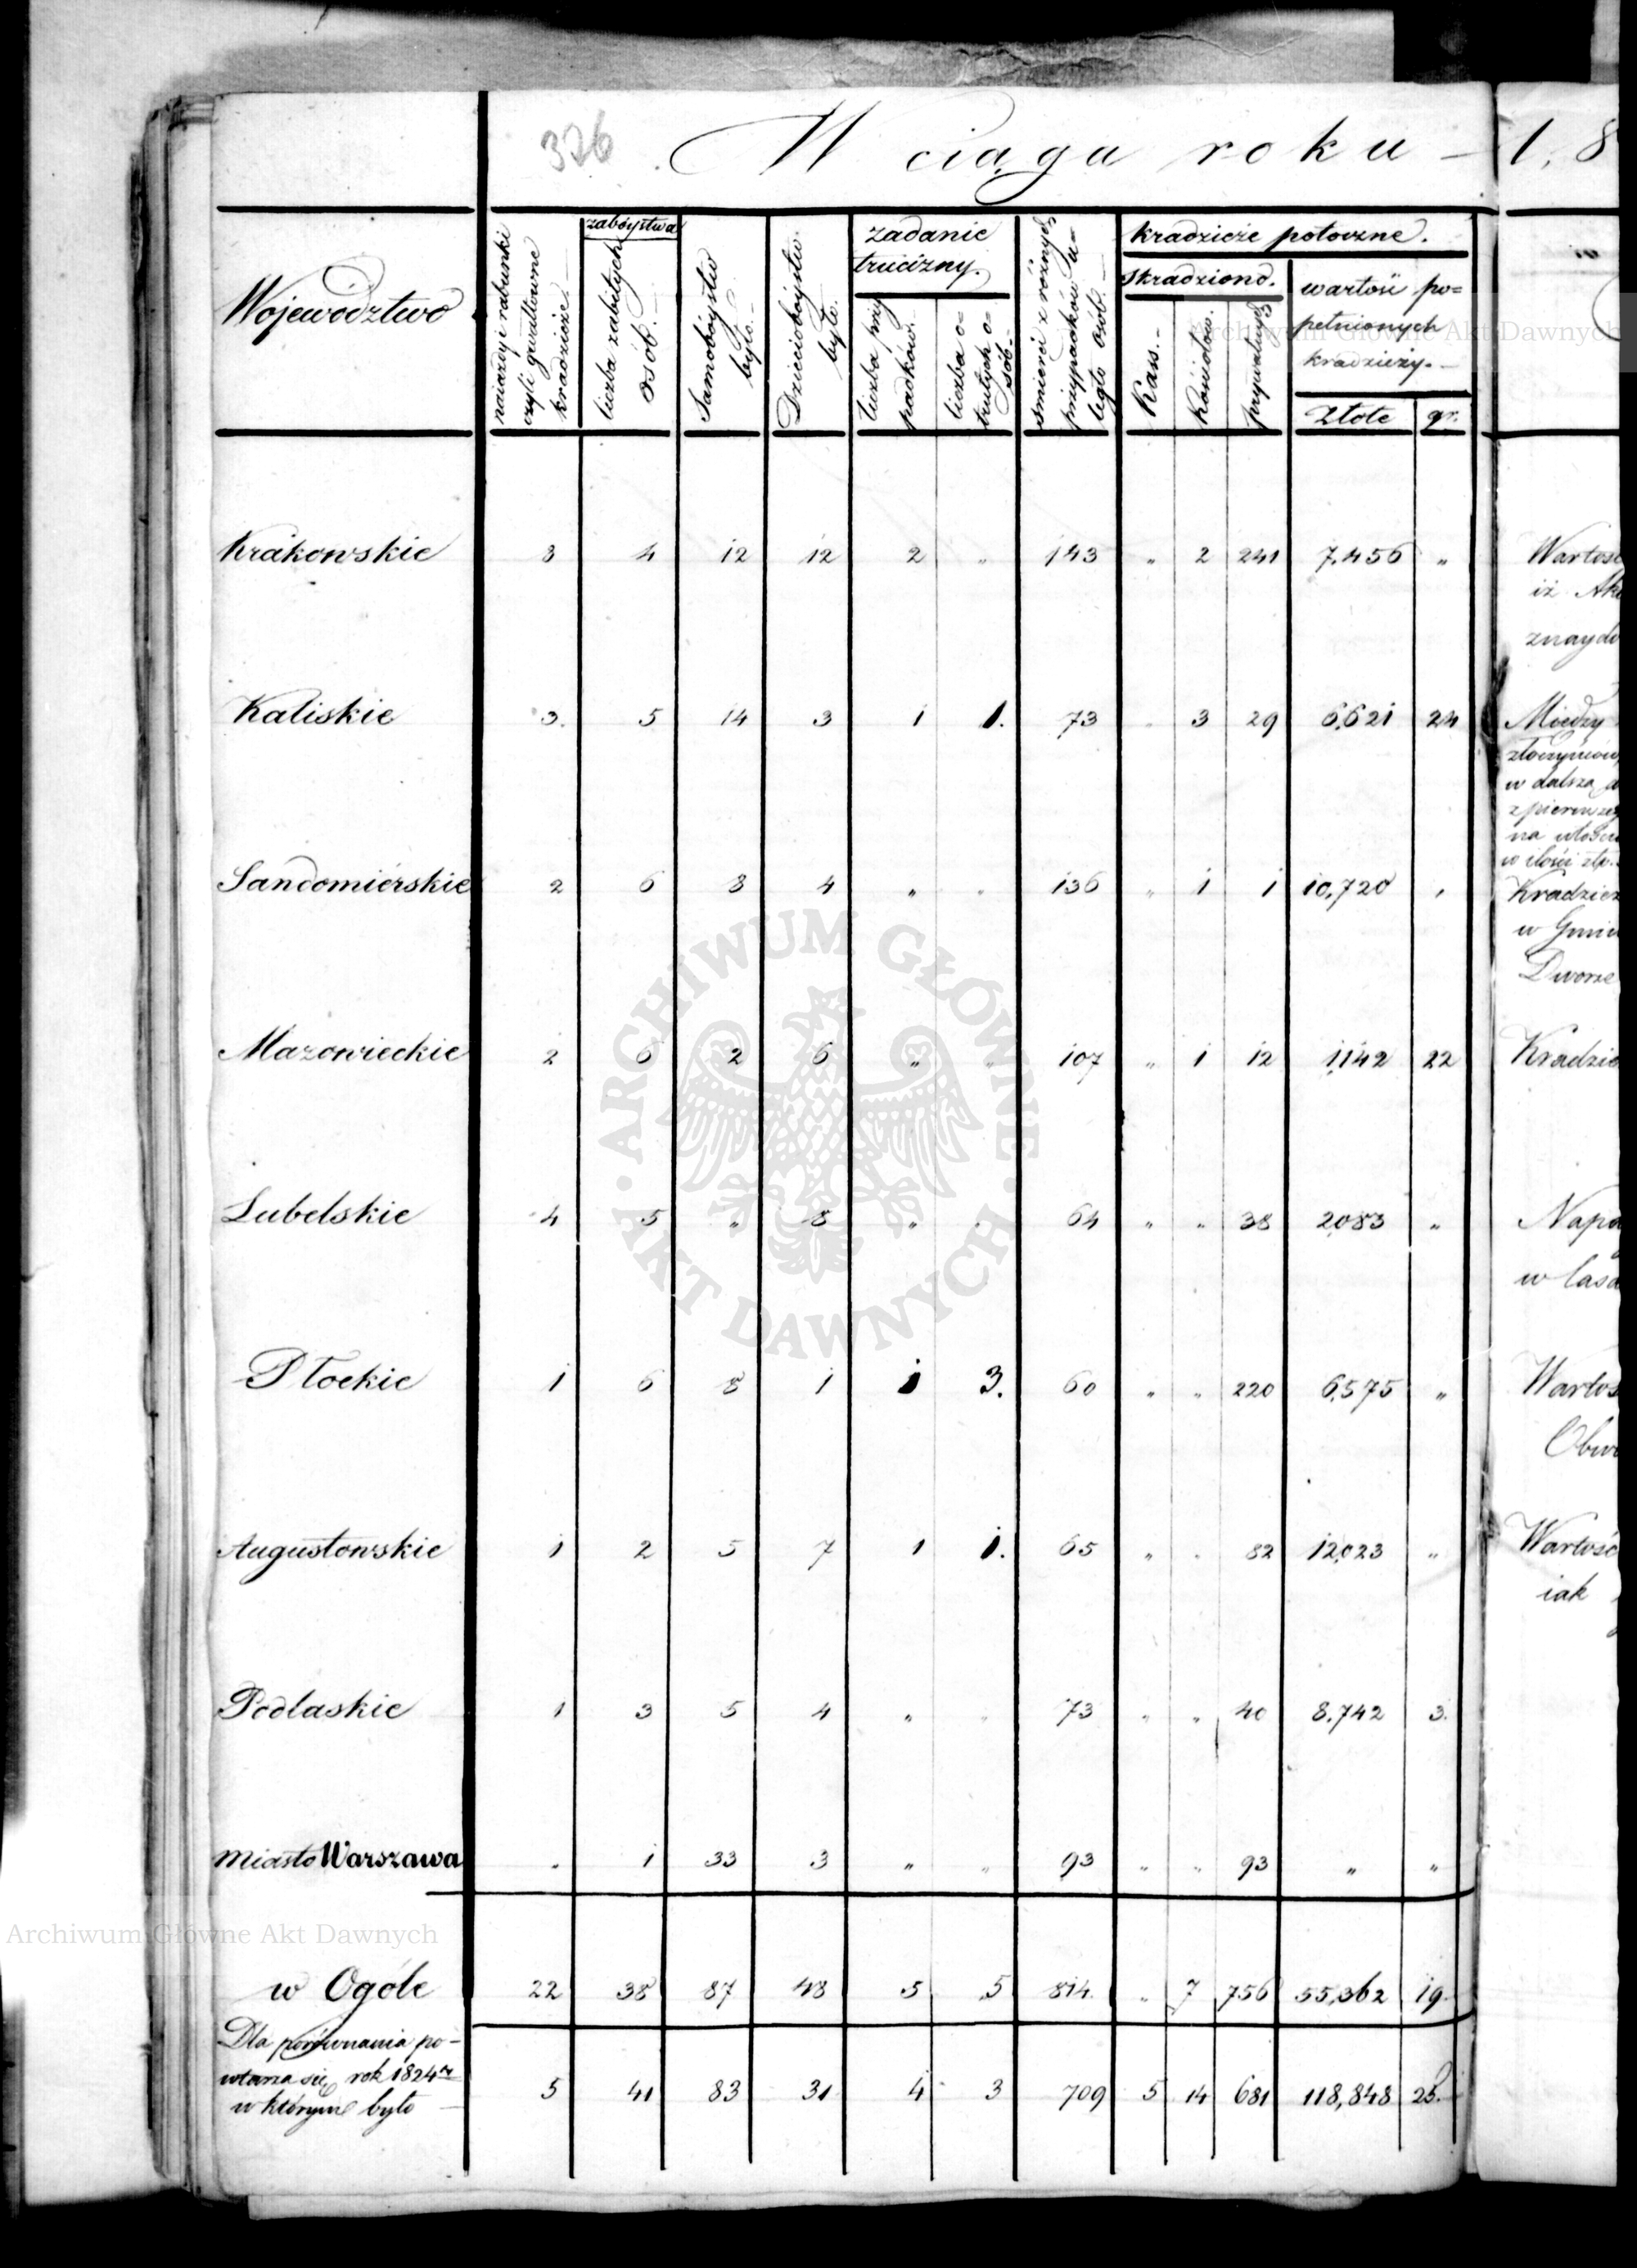 326
W ciągu roku — 1,8
Województwo
naiazdy i rabunki czyli gwałtowne kradzieże
zabóystwa
liczba zabitych osób.
Samobóystw było.
Dzieciobóystw było.
zadanie trucizny.
liczba przypadków.
liczba otrutych osób.
śmierci z różnych przypadków uległo osób.
kradzieże potoczne.
skradziono.
Kass.
Kościołów.
prywatnych
wartość po=
pełnionych
kradzieży.
Złote gr.
Krakowskie 3 4 12 12 2 „ 143 „ 2 241 7,456 „
Kaliskie 3. 5 14 3 1 1. 73 „ 3 29 6,621 24
Sandomiérskie 2 6 8 4 „ „ 136 „ 1 1 10,720 „
Mazowieckie 2 6 2 6 „ „ 107 „ 1 12 1,142 22
Lubelskie 4 5 „ 8 „ „ 64 „ „ 38 2,083 „
Płockie 1 6 8 1 1 3. 60 „ „ 220 6,575 „
Augustowskie 1 2 5 7 1 1. 65 „ „ 82 12,023 „
Podlaskie 1 3 5 4 „ „ 73 „ „ 40 8,742 3.
Miasto Warszawa „ 1 33 3 „ „ 93 „ „ 93 „ „
w Ogóle 22 38 87 48 5 5 814. „ 7 756 55,362 19.
Dla porównania po-
wtarza się rok 1824ty
w którym było 5 41 83 31 4 3 709 5 14 681 118,848 25.
iż
Między
w dalszą
na
w ilości złp.
w
Dworze
w
iak
ARCHIWUM GŁÓWNE AKT DAWNYCH
Archiwum Główne Akt Dawnych
Archiwum Główne Akt Dawnych